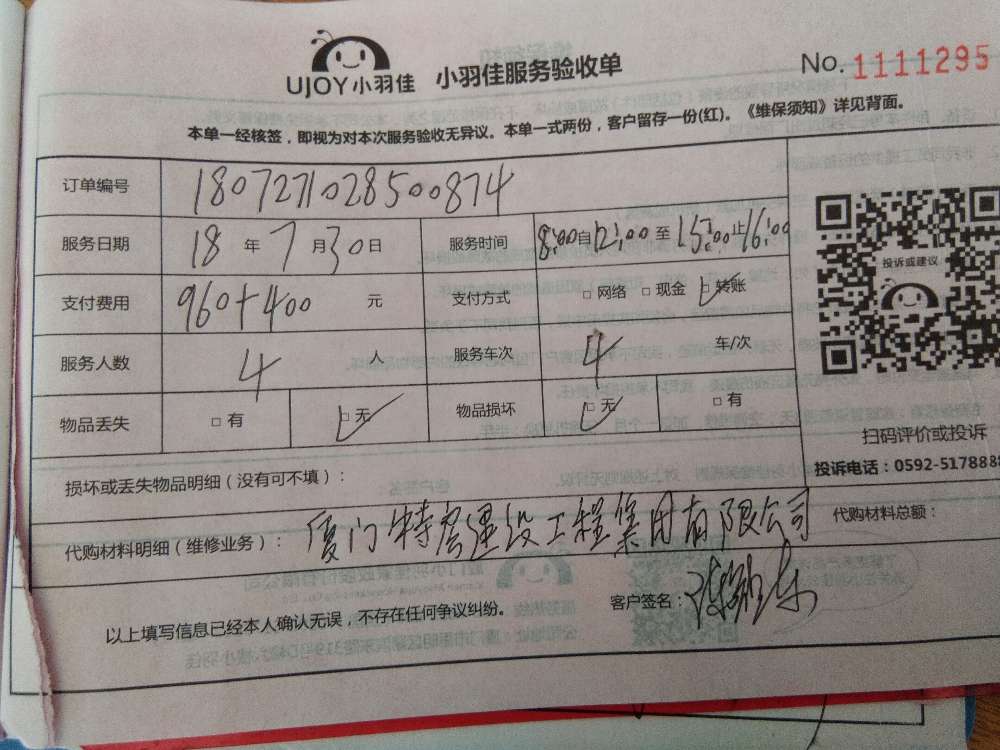 UJOY小羽佳 小羽佳服务验收单 No. 1111295
本单一经核签，即视为对本次服务验收无异议。本单一式两份，客户留存一份(红)。《维保须知》详见背面。
订单编号 1807271028500874
服务日期 18 年 7 月 30 日 服务时间 8:00 自 12:00 至 15:00 止 16:00
支付费用 960+400 元 支付方式 □ 网络 □ 现金 □ 转账
服务人数 4 人 服务车次 4 车/次
物品丢失 □ 有 □ 无 物品损坏 □ 无 □ 有
投诉或建议
扫码评价或投诉
投诉电话：0592-5178888
损坏或丢失物品明细（没有可不填）：
代购材料明细（维修业务）：厦门特房建设工程集团有限公司 代购材料总额：
以上填写信息已经本人确认无误，不存在任何争议纠纷。 客户签名：